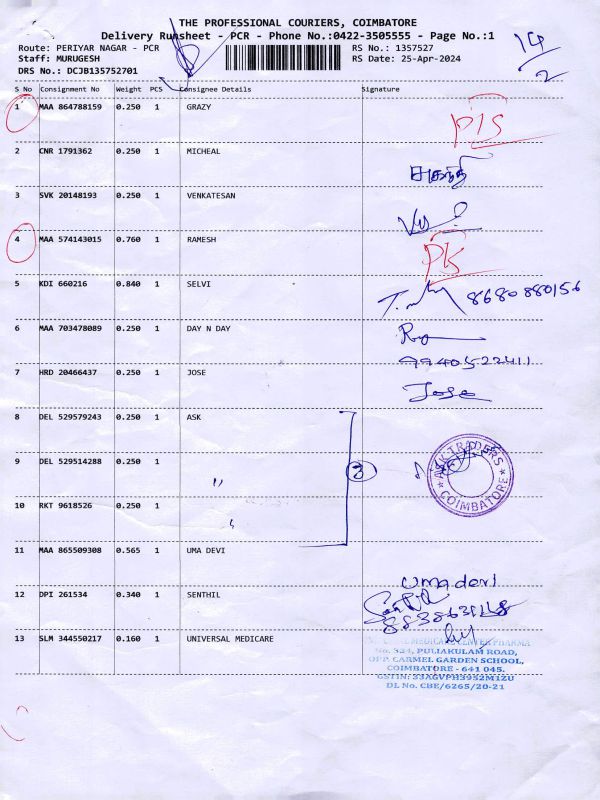 THE PROFESSIONAL COURIERS, COIMBATORE
Delivery Runsheet - PCR - Phone No.:0422-3505555 - Page No.:1
Route: PERIYAR NAGAR - PCR
RS No.: 1357527
Staff: MURUGESH
RS Date: 25-Apr-2024
DRS No.: DCJB135752701
14/2
S No Consignment No Weight PCS Consignee Details Signature
1 MAA 864788159 0.250 1 GRAZY
2 CNR 1791362 0.250 1 MICHEAL
3 SVK 20148193 0.250 1 VENKATESAN
4 MAA 574143015 0.760 1 RAMESH PK
5 KDI 660216 0.840 1 SELVI 8680880156
6 MAA 703478089 0.250 1 DAY N DAY
9940522411
7 HRD 20466437 0.250 1 JOSE Jose
8 DEL 529579243 0.250 1 ASK
9 DEL 529514288 0.250 1 " 3
ASK TRADERS
COIMBATORE
10 RKT 9618526 0.250 1 "
11 MAA 865509308 0.565 1 UMA DEVI Uma devi
12 DPI 261534 0.340 1 SENTHIL
13 SLM 344550217 0.160 1 UNIVERSAL MEDICARE
MEDICARE CENTER PHARMA
No. 324, PULIAKULAM ROAD,
OPP. CARMEL GARDEN SCHOOL,
COIMBATORE - 641 045.
GSTIN: 33AGVPH3952M1ZU
DL No. CBE/6265/20-21